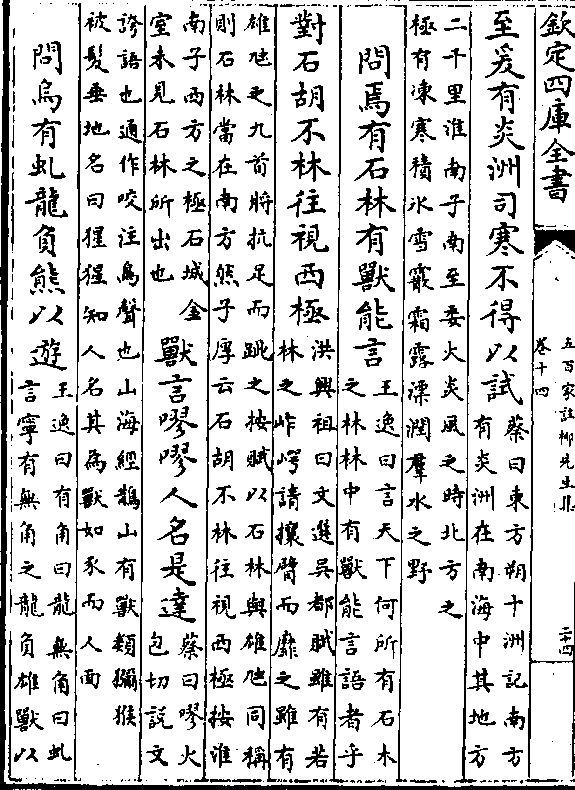 欽定四庫全書
五百家註柳先生集
卷十四
二十四
至爰有炎洲司寒不得以試
蔡曰東方朔十洲記南方
有炎洲在南海中其地方
二千里淮南子南至委火炎風之時北方之
極有凍寒積氷雪霰霜露漂潤羣水之野
問焉有石林有獸能言
王逸曰言天下何所有石木
之林林中有獸能言語者乎
對石胡不林往視西極
洪興祖曰文選吳都賦雖有若
林之岞崿請攘臂而靡之雖有
雄虺之九首將抗足而跳之按賦以石林與雄虺同稱
則石林當在南方然子厚云石胡不林往視西極按淮
南子西方之極石城金
室未見石林所出也
獸言嘐嘐人名是達
蔡曰嘐火
包切説文
誇語也通作咬注鳥聲也山海經鵲山有獸類獼猴
被髮垂地名曰猩猩知人名其為獸如豕而人面
問烏有虬龍負熊以遊
王逸曰有角曰龍無角曰虬
言寧有無角之龍負雄獸以